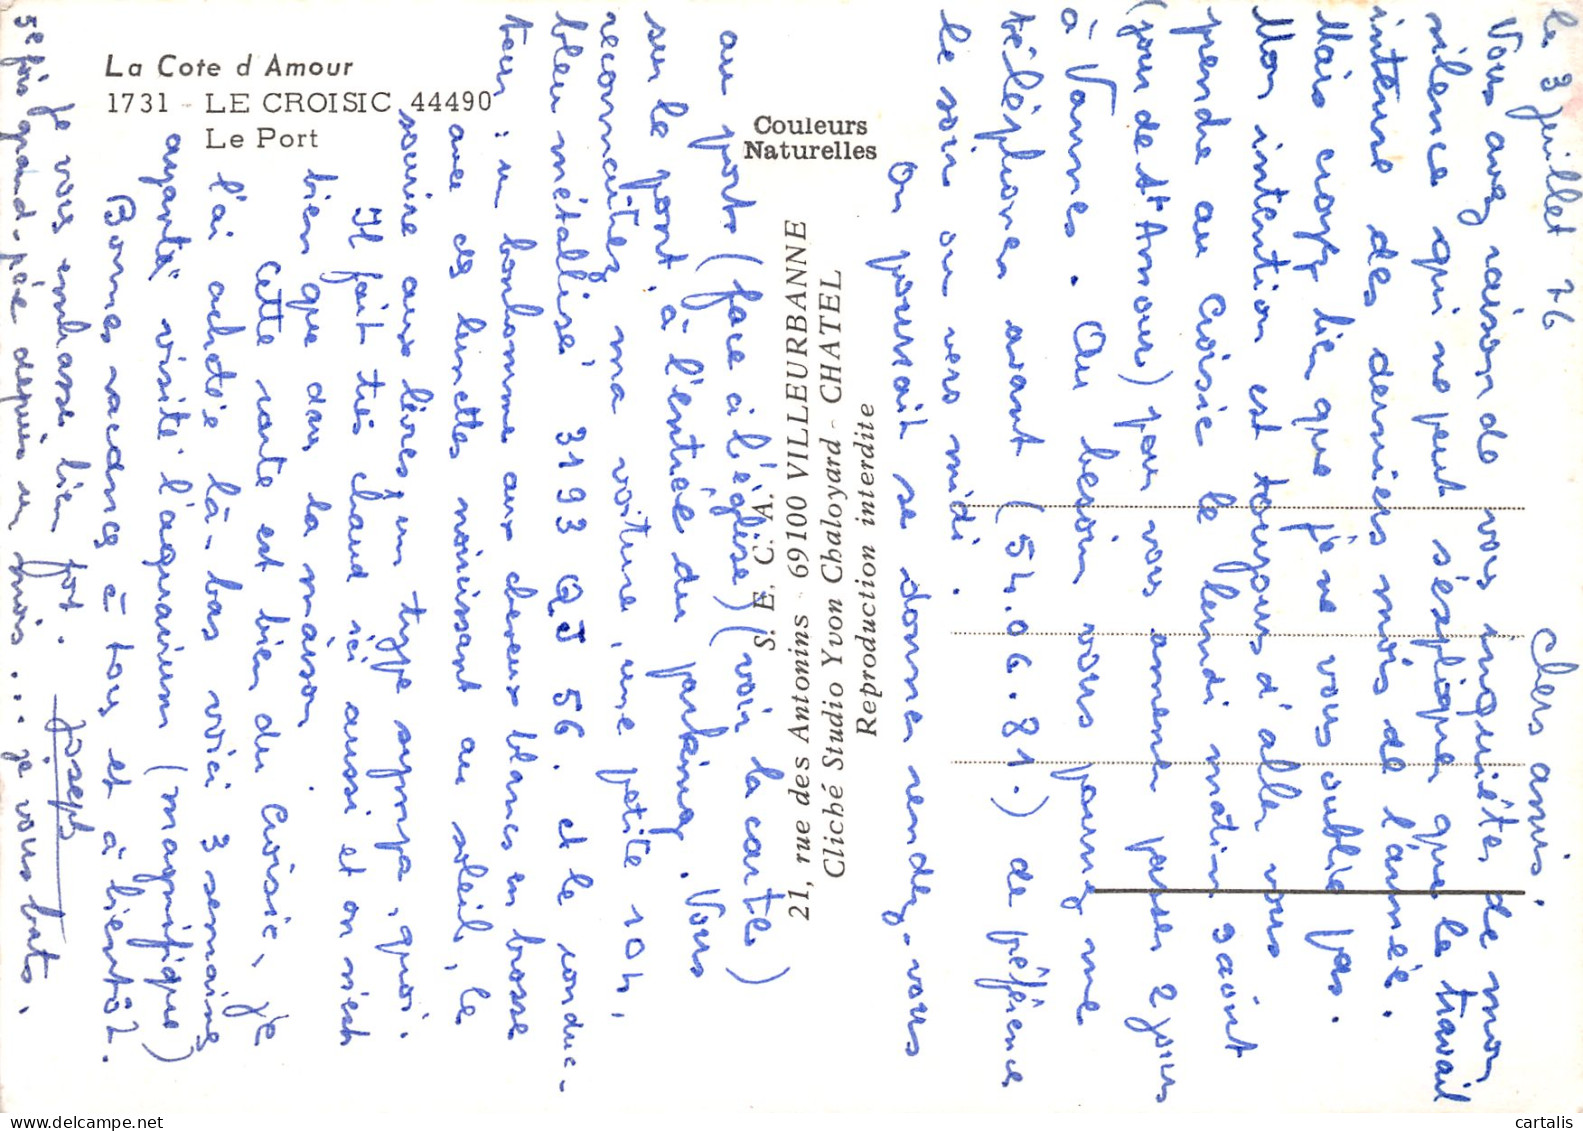 La Cote d'Amour
1731 - LE CROISIC 44490
Le Port
Couleurs
Naturelles
S. E. C. A.
21, rue des Antonins - 69100 VILLEURBANNE
Cliché Studio Yvon Chaloyard - CHATEL
Reproduction interdite
le 3 juillet 76
Chers amis
Vous avez raison de vous inquiéter de mon
silence qui ne peut s'expliquer que le travail
intense des derniers mois de l'année.
Mais croyez bien que je ne vous oublie pas.
Mon intention est toujours d'aller vous
prendre au Croisic le lundi matin 9 août
(jour de St Amour) pour vous amener passer 2 jours
à Vannes. Au besoin vous pourrez me
téléphoner avant (54.06.81.) de préférence
le soir ou vers midi.
On pourrait se donner rendez-vous
au port (face à l'église) (voir la carte)
sur le pont, à l'entrée du parking. Vous
reconnaîtrez ma voiture, une petite 104,
bleu métallisé 3193 QJ 56. et le conduc-
teur : un bonhomme aux cheveux blancs en brosse
avec des lunettes noircissant au soleil, le
sourire aux lèvres, un type sympa, quoi.
Il fait très chaud ici aussi et on n'est
bien que dans la maison.
Cette carte est bien du Croisic, je
l'ai achetée là-bas voici 3 semaines
ayant visité l'aquarium (magnifique)
Bonnes vacances à tous et à bientôt.
je vous embrasse bien fort.
Joseph
5e fois grand-père depuis un mois... je vous bats.
cartalis